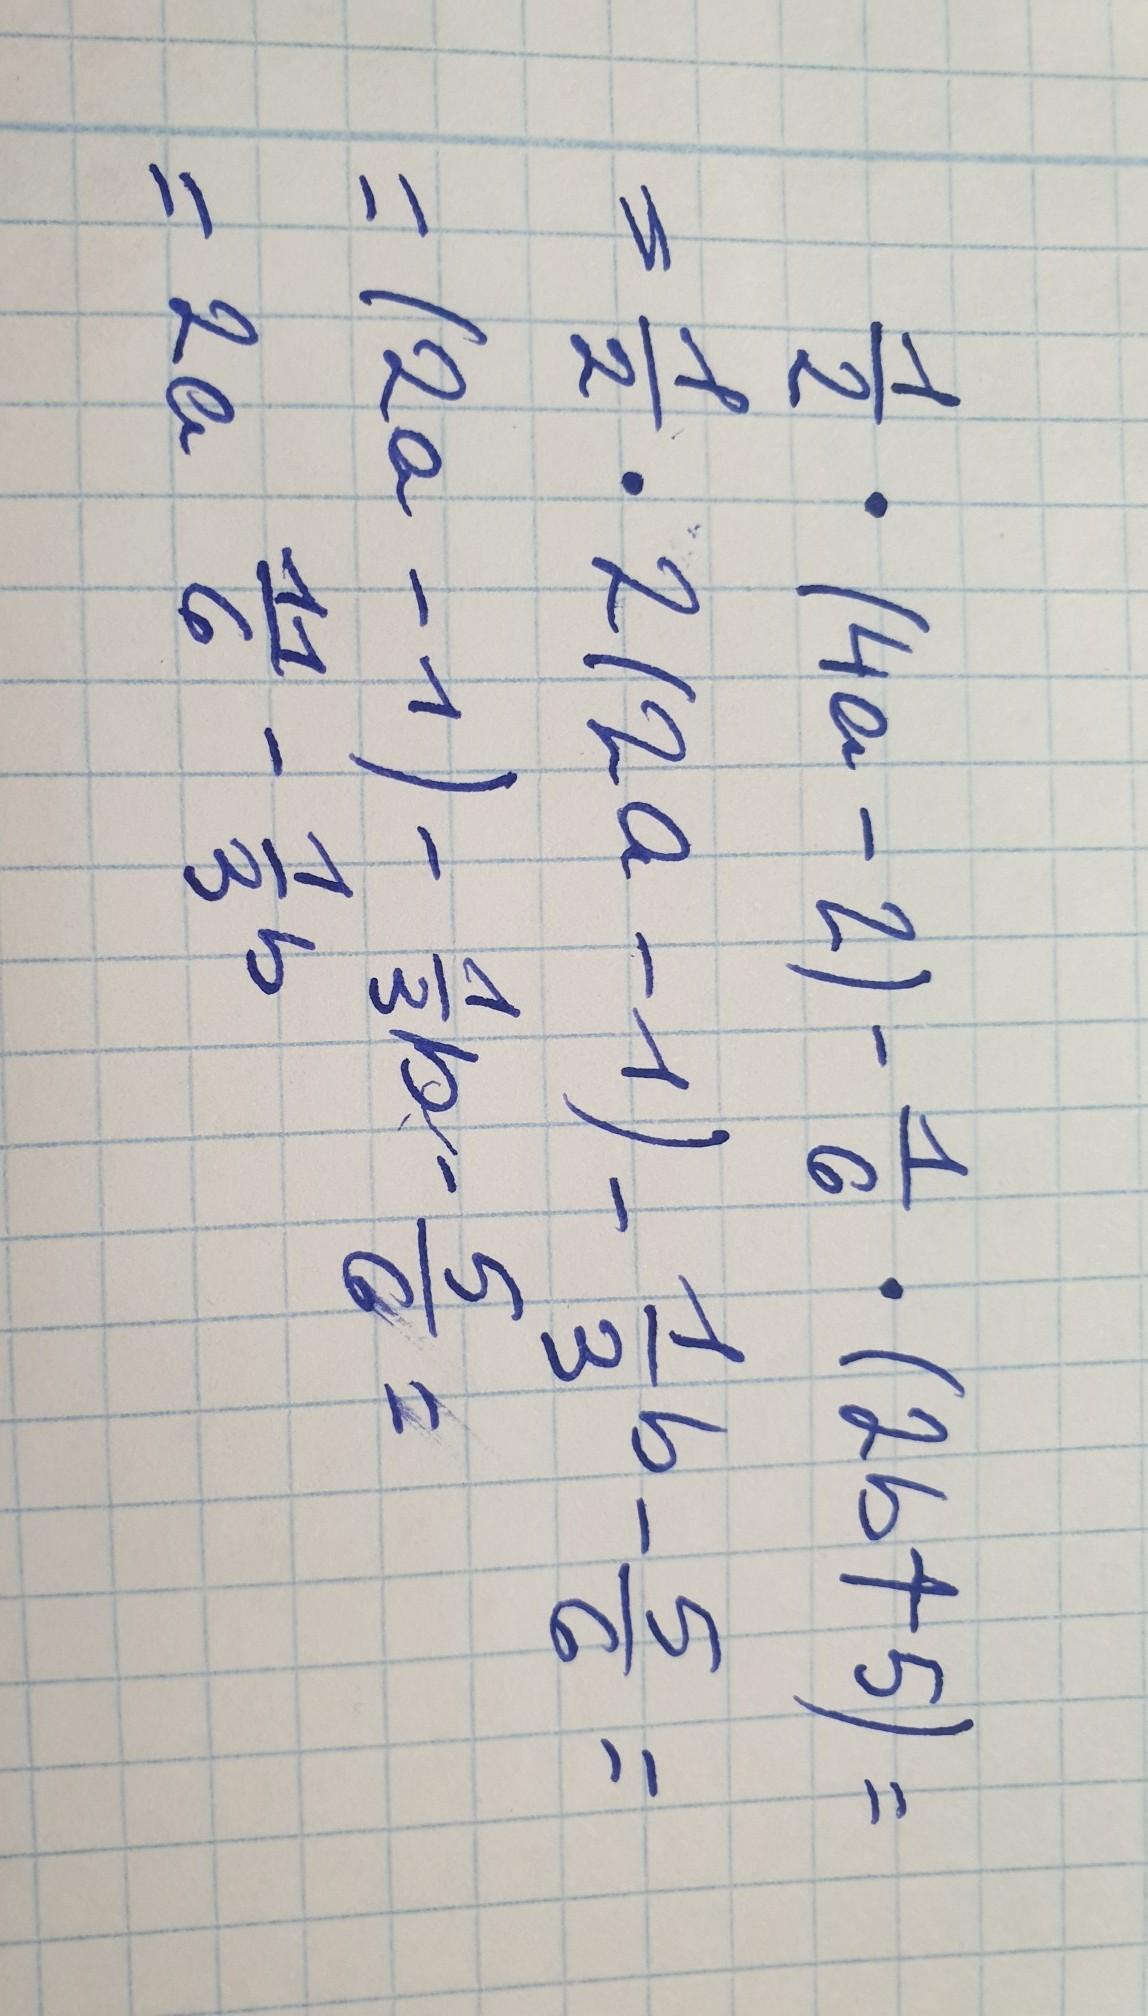 1/2 · (4a - 2) - 1/6 · (2b + 5) =
= 1/2 · 2(2a - 1) - 1/3 b - 5/6 =
= (2a - 1) - 1/3 b - 5/6 =
= 2a 11/6 - 1/3 b